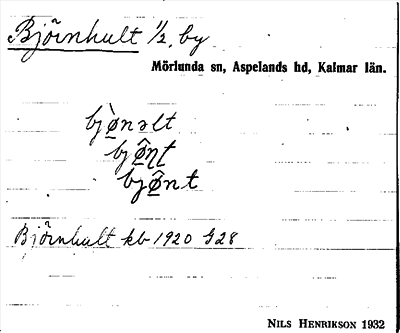 Björnhult 1/2, by
Mörlunda sn, Aspelands hd, Kalmar län.
bjø̀nəlt
bjø̂ṇṭ
bjø̂nt
Björnhult kb 1920 G28
NILS HENRIKSON 1932